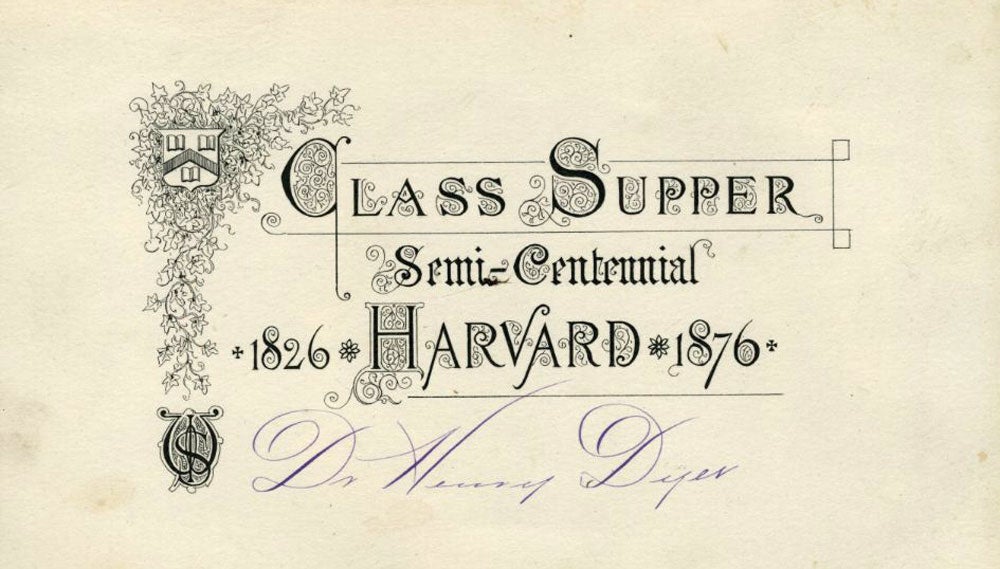 Class Supper
Semi-Centennial
1826 Harvard 1876
Dr Henry Dyer